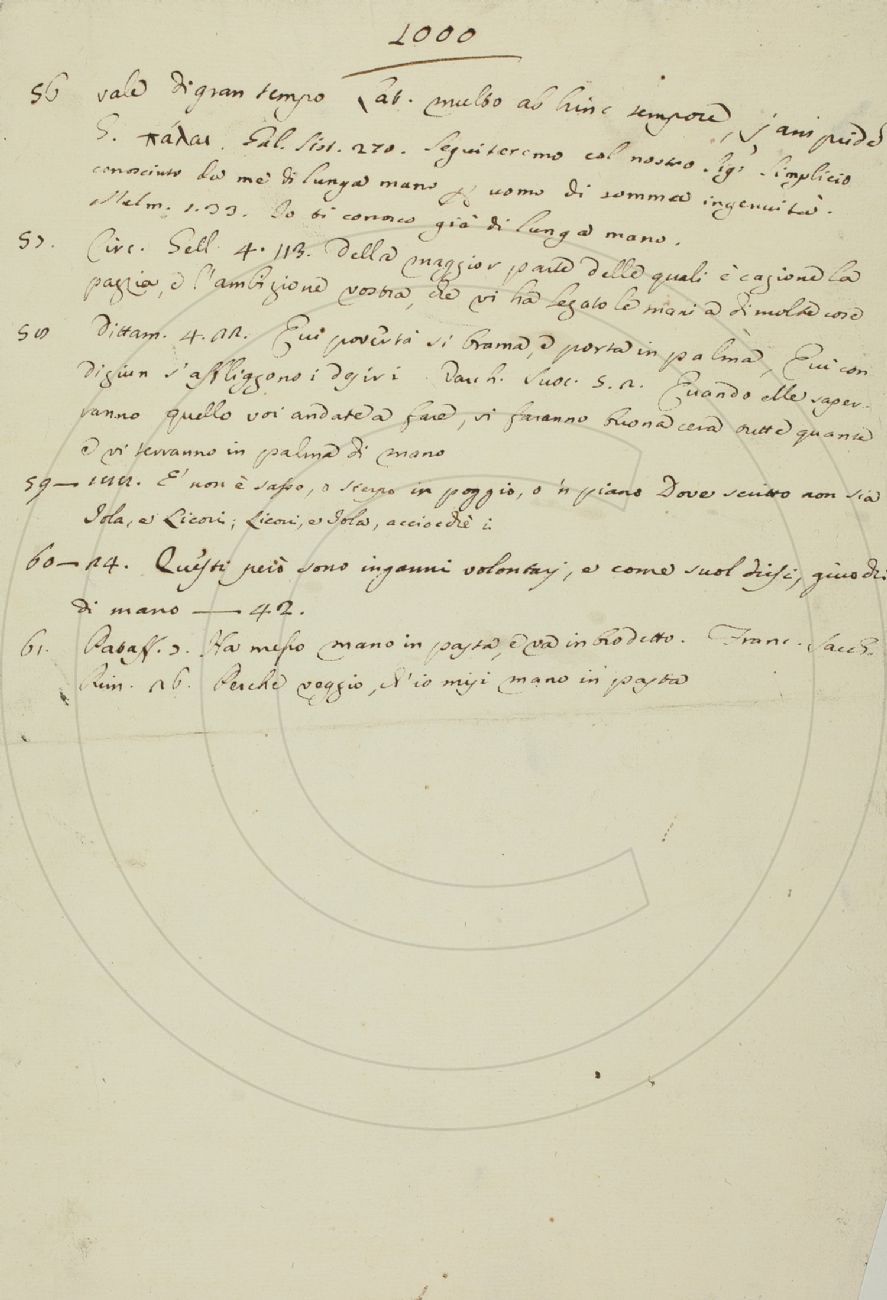 1000
56 vale di gran tempo Lat. multo ab hinc tempore, jam pridem
G. πάλαι. Gal. Sist. 270. Seguiteremo col nostro Sigr Simplicio
conosciuto da me di lunga mano uomo di somma ingenuità.
Malm. 1.33. Io ti conosco già di lunga mano.
57. Circ. Gell. 4. 113. Della maggior parte delle quali è cagione la
pazzia, e l'ambizione vostra, che vi ha legato le mani a di molte cose
58 Dittam. 4. 22. Qui povertà si brama, e porta in palma, Qui con
digiun s'affliggono i
Varch. Suoc. 5. 2. Quando elle saper-
ranno quello voi andate a fare, vi faranno buona cera tutte quante
e vi terranno in palma di mano
59 — E' non è sasso, o sterpo in poggio, o 'n piano Dove scritto non sia
Iola, e Licori; Licori, e Iola,
60 — 24. Questi però sono inganni volontarj, e come suol dirsi, giuochi
di mano — 42.
61. Pataff. 3. Ha messo mano in pasta, e va in brodetto. Franc. Sacch.
Rim. 26. Perchè veggio, ch'io misi mano in pasta